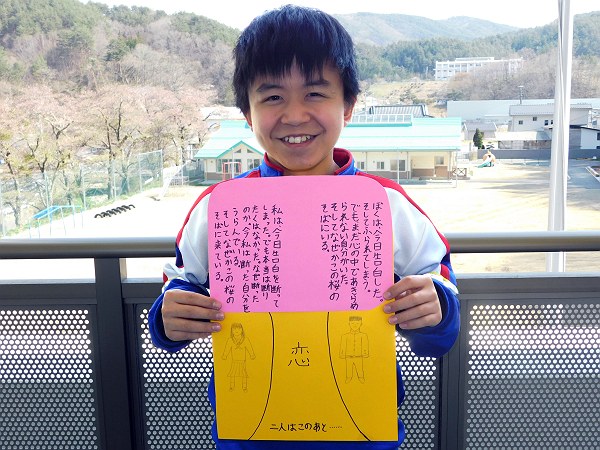 ぼくは今日告白した。
そしてふられてしまう。
でも、まだ心の中であきらめ
られない自分がいた。
そしてなぜかこの桜の
そばにいる。
私は今日告白を断って
しまった。でも本当は断り
たくはなかった。なぜ断った
のか。今私は断った自分を
うらんでいる。
そしてなぜかこの桜の
そばに来ている。
恋
二人はこのあと……